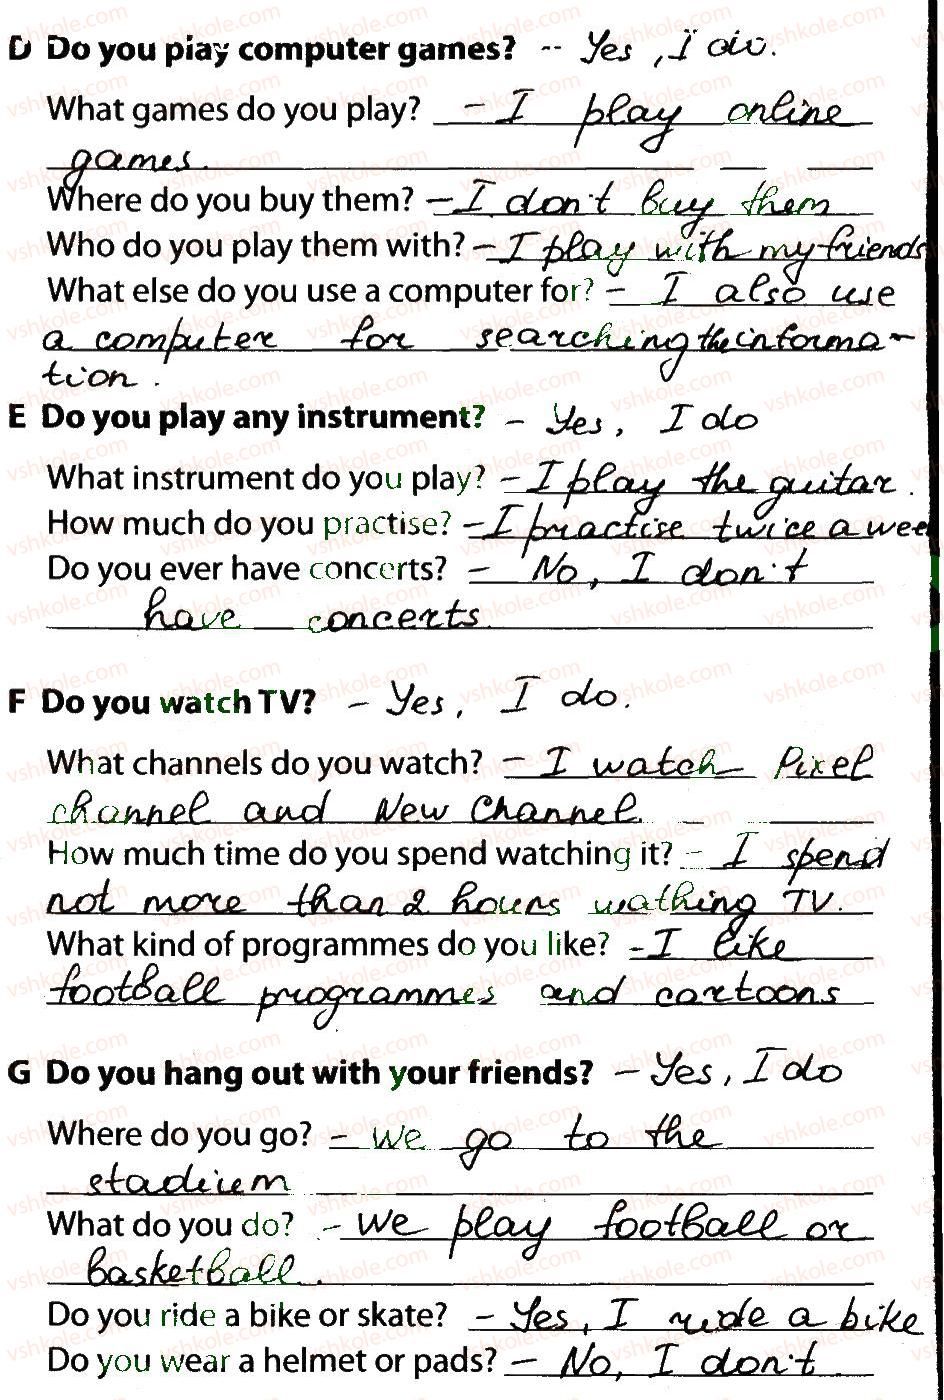 D Do you play computer games? -- Yes, I do.
What games do you play? – I play online
games.
Where do you buy them? – I don't buy them
Who do you play them with? – I play with my friends
What else do you use a computer for? – I also use
a computer for searching the informa-
tion.
E Do you play any instrument? – Yes, I do
What instrument do you play? – I play the guitar.
How much do you practise? – I practise twice a wee
Do you ever have concerts? – No, I don't
have concerts.
F Do you watch TV? – Yes, I do.
What channels do you watch? – I watch Pixel
channel and New Channel.
How much time do you spend watching it? – I spend
not more than 2 hours wathing TV.
What kind of programmes do you like? – I like
football programmes and cartoons
G Do you hang out with your friends? – Yes, I do
Where do you go? – We go to the
stadium
What do you do? – We play football or
basketball.
Do you ride a bike or skate? – Yes, I ride a bike
Do you wear a helmet or pads? – No, I don't
vshkole.com